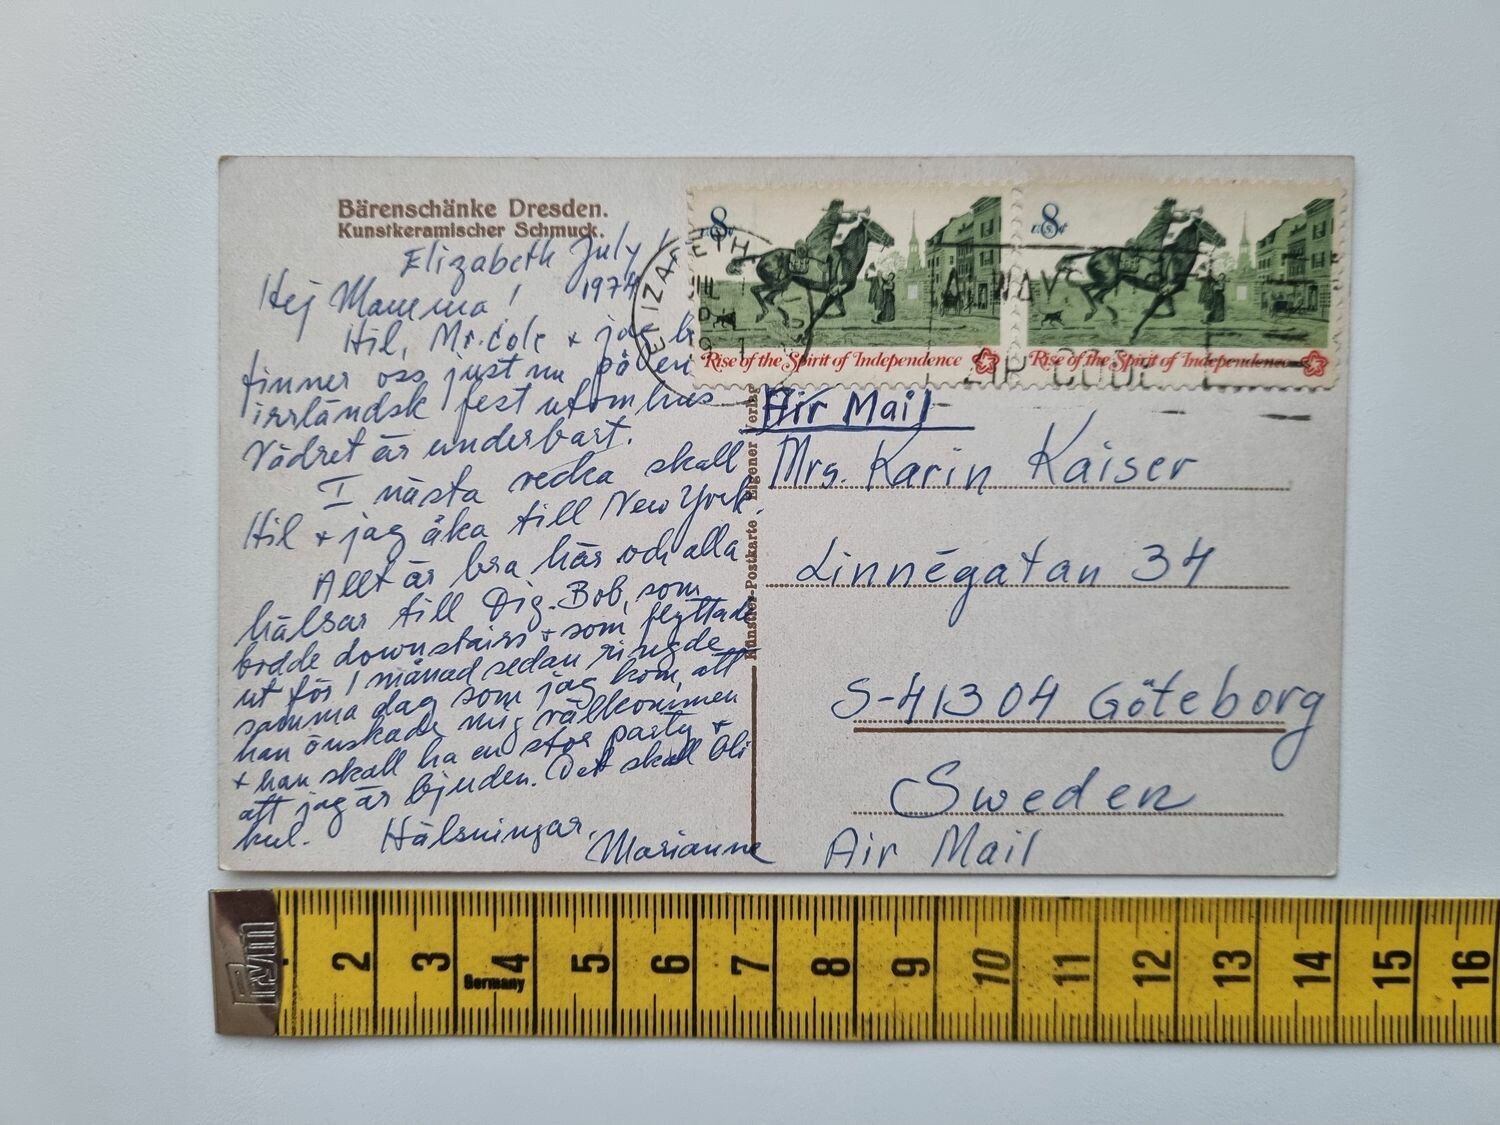 Bärenschänke Dresden.
Kunstkeramischer Schmuck.
Elizabeth July
1974
Hej Mamma!
Hil, Mr. Cole + jag be
finner oss just nu på en
irrländsk fest utomhus
Vädret är underbart.
I nästa vecka skall
Hil + jag åka till New York.
Allt är bra här och alla
hälsar till Dig. Bob, som
bodde downstairs + som flyttade
ut för 1 månad sedan ringde
samma dag som jag kom, att
han önskade mig välkommen
+ han skall ha en stor party +
att jag är bjuden. Det skall bli
kul. Hälsningar,
Marianne
Künstler-Postkarte Eigener Verlag
8
U.S. ¢
Rise of the Spirit of Independence
8
U.S. ¢
Rise of the Spirit of Independence
ELIZABETH
JUL
PM
ALWAYS
ZIP CODE
Air Mail
Mrs. Karin Kaiser
Linnégatan 34
S-41304 Göteborg
Sweden
Air Mail
2 3 4 5 6 7 8 9 10 11 12 13 14 15 16
Germany